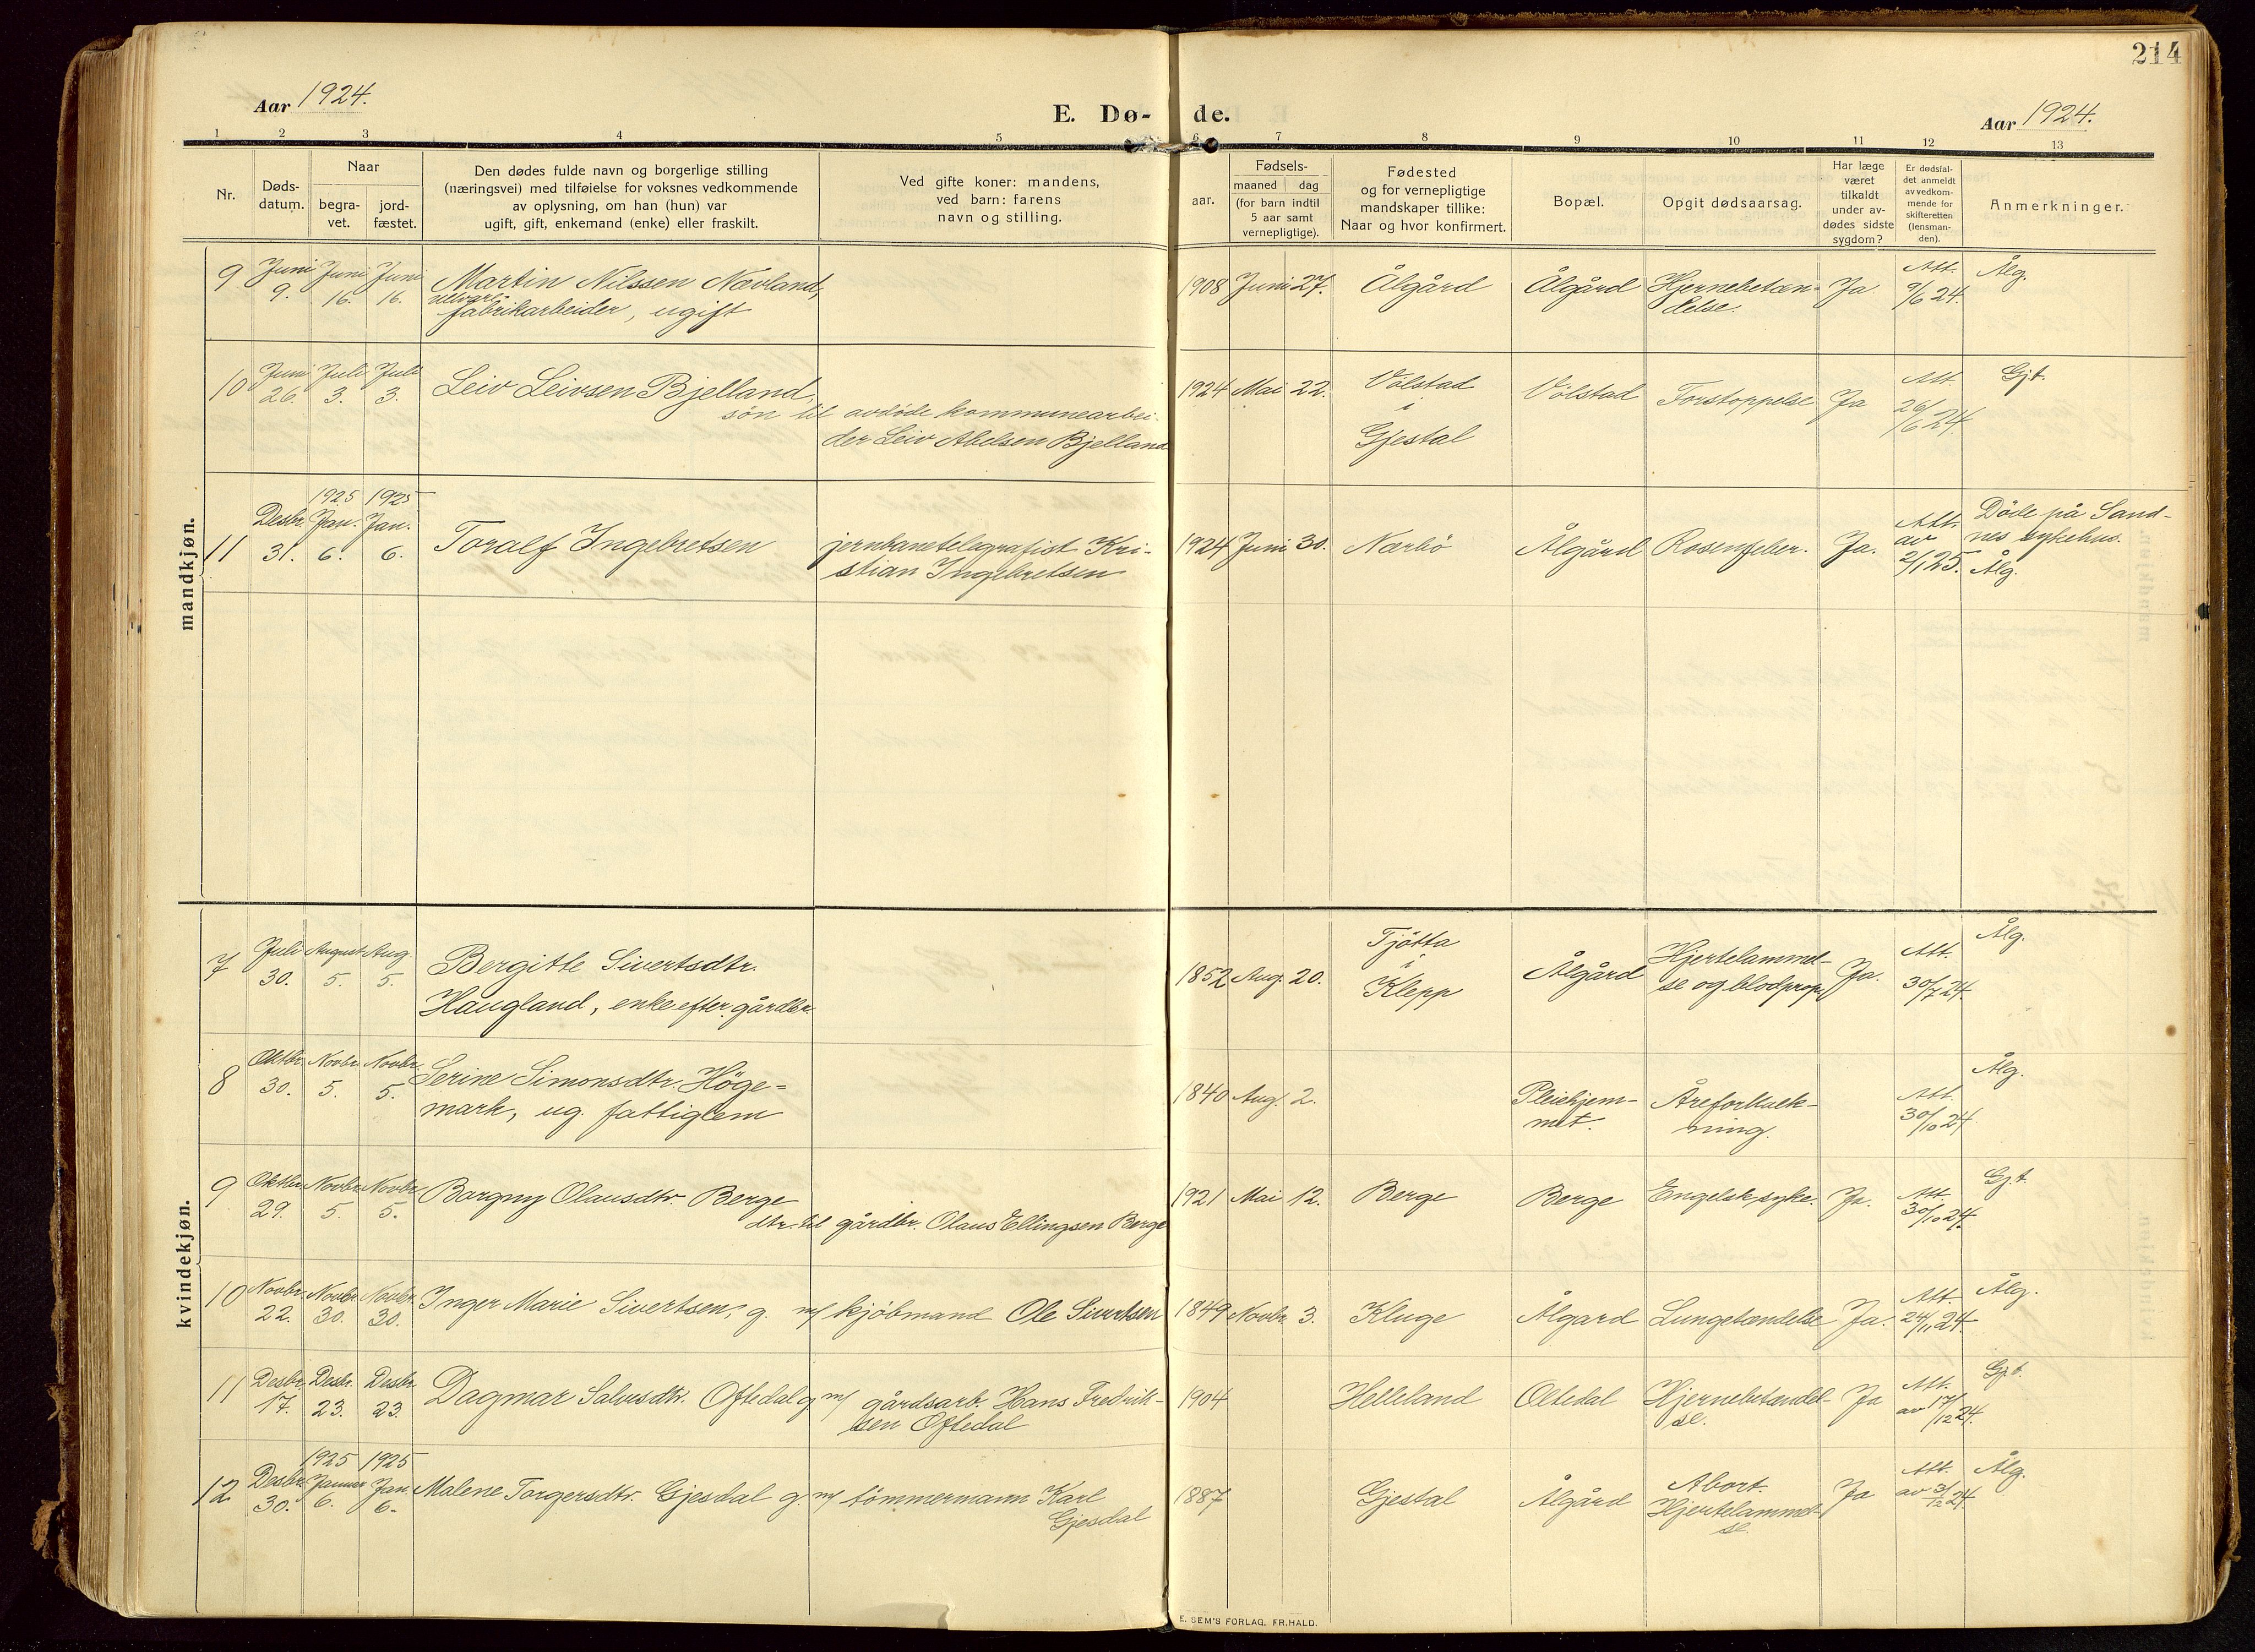 214
Aar 1924.
E. Dø- de.
Aar 1924.
1 2 3 4 5 6 7 8 9 10 11 12 13
Nr.
Døds-
datum.
Naar
begra-
vet.
jord-
fæstet.
Den dødes fulde navn og borgerlige stilling
(næringsvei) med tilføielse for voksnes vedkommende
av oplysning, om han (hun) var
ugift, gift, enkemand (enke) eller fraskilt.
Ved gifte koner: mandens,
ved barn: farens
navn og stilling.
Fødsels-
aar.
maaned dag
(for barn indtil
5 aar samt
vernepligtige).
Fødested
og for vernepligtige
mandskaper tillike:
Naar og hvor konfirmert.
Bopæl.
Opgit dødsaarsag.
Har læge
været
tilkaldt
under av-
dødes sidste
sygdom?
Er dødsfal-
det anmeldt
av vedkom-
mende for
skifteretten
(lensman-
den).
Anmerkninger.
mandkjøn.
9
Juni
9.
Juni
16.
Juni
16.
Martin Nilssen Nævland,
fabrikarbeider, ugift
1908 Juni 27.
Ålgård
Ålgård
Hjernebetæn-
delse.
Ja
Att.
9/6 24.
Ålg.
10
Juni
26.
Juli
3.
Juli
3.
Leiv Leivsen Bjelland,
søn til avdøde kommunearbei-
der Leiv Abelsen Bjelland
1924 Mai 22.
Vølstad
i
Gjestal
Vølstad
Forstoppelse
Ja
Att.
26/6 24.
Gjt.
11
Desbr.
31.
1925
Jan.
6.
1925
Jan.
6.
Toralf Ingebretsen
jernbanetelegrafist Kri-
stian Ingebretsen
1924 Juni 30.
Nærbø
Ålgård
Rosenfeber.
Ja.
Att.
av
2/1 25.
Døde på Sand-
nes sykehus.
Ålg.
kvindekjøn.
7
Juli
30.
August
5.
Aug.
5.
Bergitte Sivertsdtr.
Haugland, enke efter gårdbr.
1852 Aug. 20.
Tjøtta
i
Klepp
Ålgård
Hjertelammel-
se og blodprop
Ja.
Att.
30/7 24.
Ålg.
8
Oktbr.
30.
Novbr.
5.
Novbr.
5.
Serine Simonsdtr. Høge-
mark, ug. fattiglem
1840 Aug. 2.
Pleiehjem-
met.
Åreforkalk-
ning.
Att.
30/10 24
Ålg.
9
Oktbr.
29.
Novbr.
5.
Novbr.
5.
Borgny Olausdtr. Berge
dtr. til gårdbr. Olaus Ellingsen Berge
1921 Mai 12.
Berge
Berge
Engelsk syke.
Ja.
Att.
30/10 24.
Gjt.
10
Novbr.
22.
Novbr.
30.
Novbr.
30.
Inger Marie Sivertsen, g. m/ kjøbmand Ole Sivertsen
1849 Novbr. 3.
Kluge
Ålgård
Lungebetændelse
Ja.
Att.
24/11 24.
Ålg.
11
Desbr.
17.
Desbr.
23.
Desbr.
23.
Dagmar Salvesdtr. Oftedal g. m/ gårdsarb. Hans Fredrik-
sen Oftedal
1904
Helleland
Oltedal
Hjernebetændel-
se.
Ja
Att.
av 17/12 24.
Gjt.
12
Desbr.
30.
1925
Januar
6.
1925
Jan.
6.
Malene Torgersdtr. Gjesdal g. m/ tømmermann Karl
Gjesdal
1887
Gjestal
Ålgård
Abort.
Hjertelammel-
se.
Ja
Att.
av 31/12 24
Ålg.
E. SEM'S FORLAG, FR.HALD.